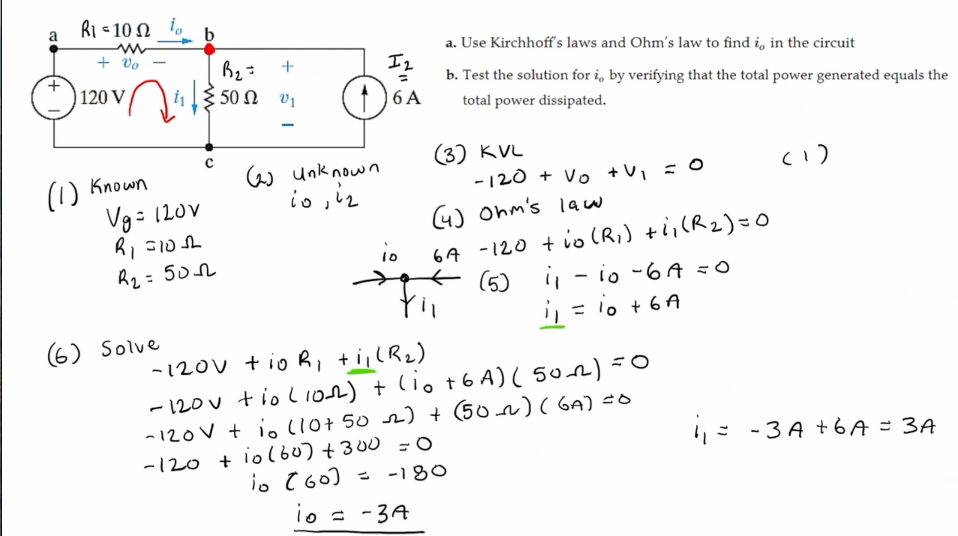 R1 = 10 Ω i₀
a b
+ v₀ −
+
−
120 V
i₁
R₂ =
50 Ω
+
v₁
−
I₂
=
6 A
c
a. Use Kirchhoff's laws and Ohm's law to find i₀ in the circuit
b. Test the solution for i₀ by verifying that the total power generated equals the
total power dissipated.
(1) Known
Vg = 120V
R₁ = 10 Ω
R₂ = 50 Ω
(2) unknown
i₀ , i₂
(3) KVL
-120 + V₀ + V₁ = 0 (1)
(4) Ohm's law
-120 + i₀(R₁) + i₁(R₂) = 0
i₀ 6A
i₁
(5) i₁ - i₀ - 6A = 0
i₁ = i₀ + 6A
(6) Solve
-120V + i₀ R₁ + i₁(R₂)
-120V + i₀(10Ω) + (i₀ + 6A)(50Ω) = 0
-120V + i₀(10+50 Ω) + (50Ω)(6A) = 0
-120 + i₀(60) + 300 = 0
i₀ (60) = -180
i₀ = -3A
i₁ = -3A + 6A = 3A